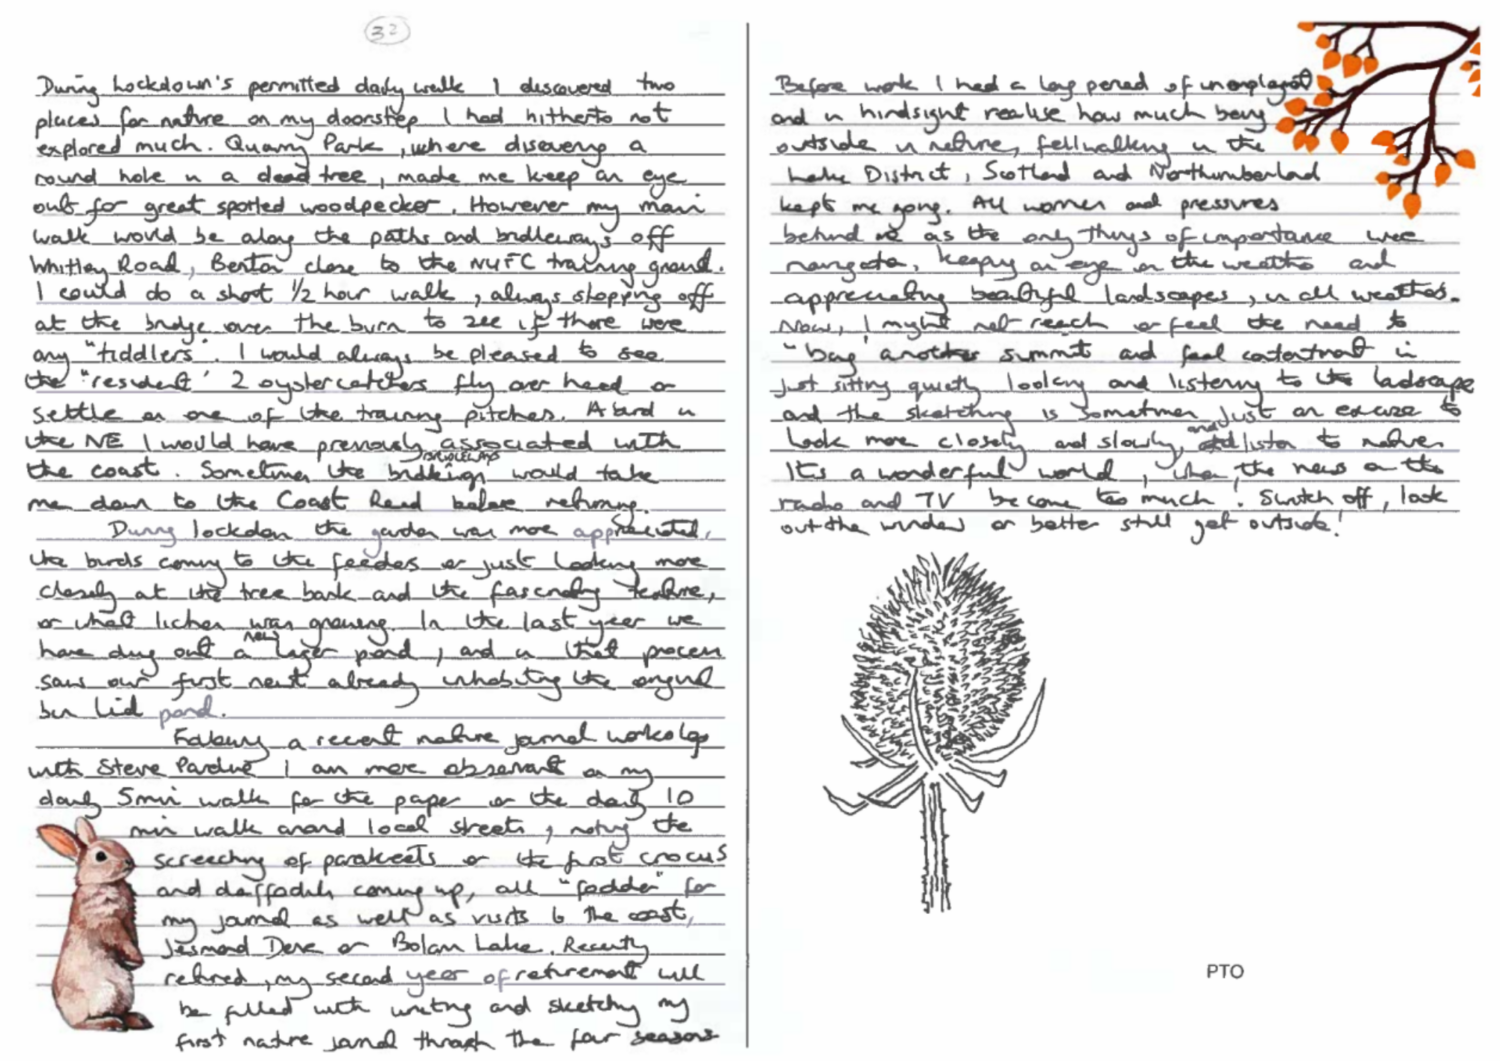 32
During lockdown's permitted daily walk I discovered two
places for nature on my doorstep I had hitherto not
explored much. Quarry Park, where discovering a
round hole in a dead tree, made me keep an eye
out for great spotted woodpecker. However my main
walk would be along the paths and bridleways off
Whitley Road, Benton close to the NUFC training ground.
I could do a short 1/2 hour walk, always stopping off
at the bridge over the burn to see if there were
any "tiddlers". I would always be pleased to see
the "resident" 2 oystercatchers fly over head or
settle on one of the training pitches. A bird in
the NE I would have previously associated with
the coast. Sometimes the bridleways would take
me down to the Coast Road before returning.
During lockdown the garden was more appreciated,
the birds coming to the feeders or just looking more
closely at the tree bark and the fascinating texture,
or what lichen was growing. In the last year we
have dug out a new larger pond, and in that process
saw our first newt already inhabiting the original
bin lid pond.
Following a recent nature journal workshop
with Steve Pardue I am more observant on my
daily 5min walk for the paper or the daily 10
min walk around local streets, noting the
screeching of parakeets or the first crocus
and daffodils coming up, all "fodder" for
my journal as well as visits to the coast,
Jesmond Dene or Bolam Lake. Recently
retired, my second year of retirement will
be filled with writing and sketching my
first nature journal through the four seasons
Before work I had a long period of unemployment
and in hindsight realise how much being
outside in nature, fellwalking in the
Lake District, Scotland and Northumberland
kept me going. All worries and pressures
behind me as the only things of importance were
navigation, keeping an eye on the weather and
appreciating beautiful landscapes, in all weathers.
Now, I might not reach or feel the need to
"bag" another summit and feel contentment in
just sitting quietly looking and listening to the landscape
and the sketching is sometimes just an excuse to
look more closely and slowly, and listen to nature.
It's a wonderful world, when the news on the
radio and TV become too much! Switch off, look
out the window or better still get outside!
PTO